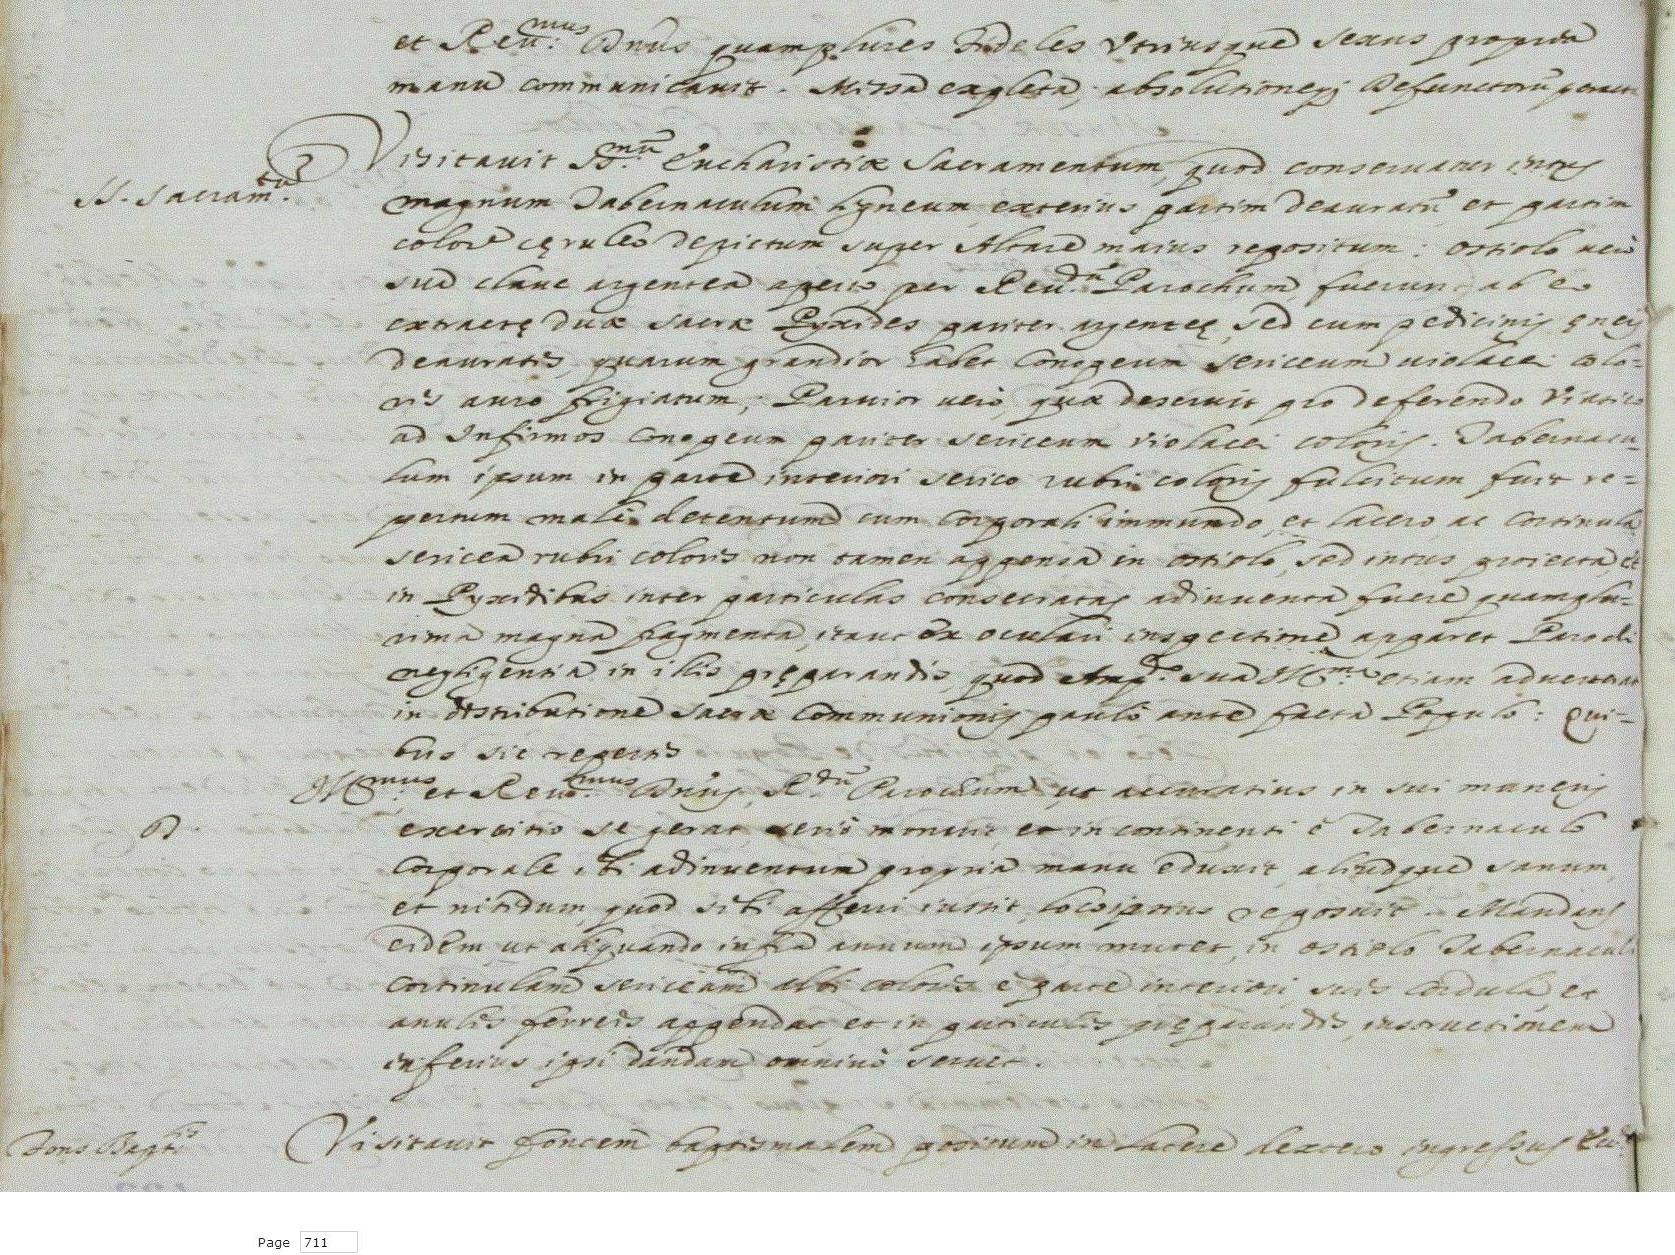 et Reu.mus Dnus quamplures Fideles Vtriusque sexus propria
manu communicauit. Missa expleta, absolutioneq; Defunctorũ peracta
Visitauit SS.mũ Eucharistiæ Sacramentum, quod conseruatur intus
SS. Sacram.tu
magnum Tabernaculum ligneum, exterius partim deauratũ et partim
colore cęruleo depictum super Altare maius repositum: Ostiolo uerò
sua claue argentea aperto per Reu.dũ Parochum, fuerunt ab eo
extractę duæ sacræ Pyxides pariter argenteę, sed cum pedicinis ęneis
deauratis, quarum grandior habet Conopeum sericeum violacei colo=
ris auro frigiatum; Paruior uerò, quæ deseruit pro deferendo Viatico
ad Infirmos conopeum pariter sericeum violacei coloris. Tabernacu=
lum ipsum in parte interiori serico rubri coloris fulcitum fuit re=
pertum malè detentum cum Corporali immundo, et lacero, ac Cortinula
sericea rubri coloris non tamen appensa in ostiolo, sed intus proiecta, et
in Pyxidibus inter particulas consecratas adinuenta fuere quamplu=
rima magna fragmenta, itaut ex oculari inspectione apparet Parochi
negligentia in illis pręparandis, quod Amp.do sua Ill.ma etiam aduerterat
in distributione Sacræ Communionis paulò ante facta Populo: Qui=
bus sic repertis
Ill.mus et Reu.mus Dnus R.dũ Parochum ut accuratius in sui muneris
exercitio se gerat seriò monuit et in continenti è Tabernaculo
Corporale ibi adinuentum propria manu eduxit, aliudque sanum,
et nitidum, quod sibi afferri iussit, loco ipsius reposuit. Mandans
eidem, ut aliquando infra annum ipsum mutet, in ostiolo Tabernaculi
Cortinulam sericeam albi coloris e parte interiori, suis cordula, et
anulis ferreis appendat, et in particulis pręparandis, instructionem
inferius ipsi dandam omninò seruet.
Fons Bapt.lis
Visitauit fontem baptismalem positum in latere dextero ingressus
Page 711